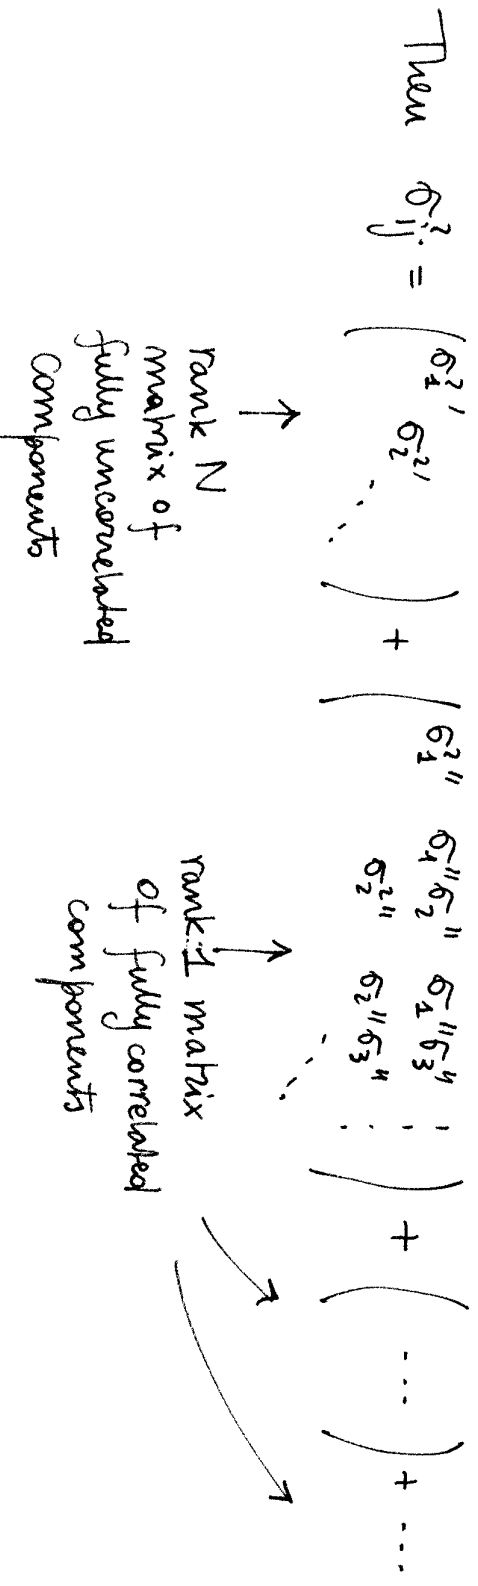 Then σ²ᵢⱼ = ( σ₁²′ σ₂²′ ⋱ ) + ( σ₁²″ σ₁″σ₂″ σ₁″σ₃″ ⋯
σ₂²″ σ₂″σ₃″ ⋯
⋱ ) + ( ⋯ ) + ⋯
rank N
matrix of
fully uncorrelated
components
rank 1 matrix
of fully correlated
components